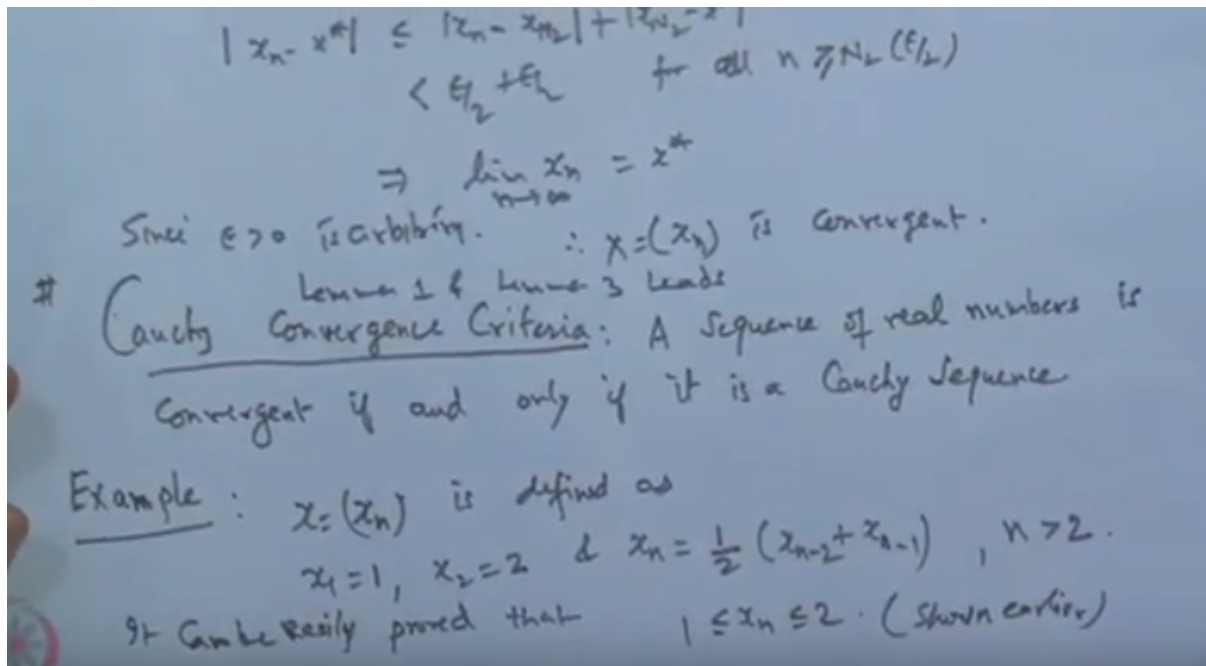 |xₙ - x*| ≤ |xₙ - x_N₂| + |x_N₂ - x*|
< ε/2 + ε/2 for all n ≥ N₂(ε/2)
⇒ lim n→∞ xₙ = x*
Since ε>0 is arbitrary. ∴ X=(xₙ) is convergent.
Lemma 1 & Lemma 3 Leads
# Cauchy Convergence Criteria: A Sequence of real numbers is
Convergent if and only if it is a Cauchy Sequence
Example : X=(xₙ) is defined as
x₁=1, x₂=2 & xₙ = 1/2 (xₙ₋₂+xₙ₋₁), n>2.
It Can be easily proved that 1 ≤ xₙ ≤ 2. (Shown earlier)